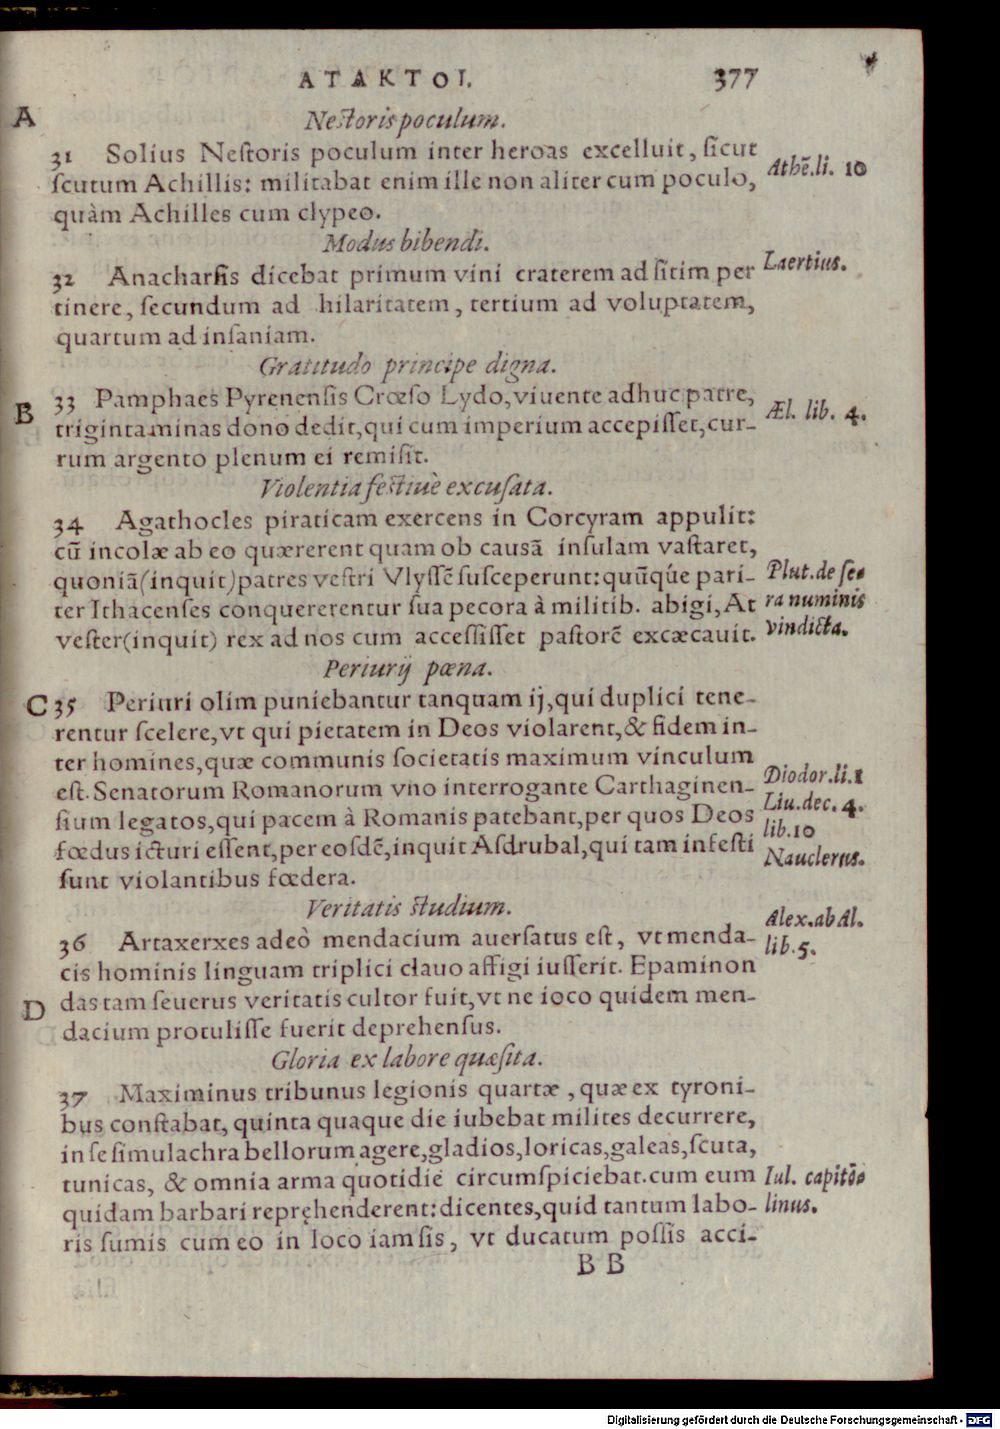 ΑΤΑΚΤΟΙ. 377
A
Nestoris poculum.
31 Solius Nestoris poculum inter heroas excelluit, ſicut
ſcutum Achillis: militabat enim ille non aliter cum poculo,
quàm Achilles cum clypeo.
Athē. li. 10
Modus bibendi.
32 Anacharſis dicebat primum vini craterem ad ſitim per
tinere, ſecundum ad hilaritatem, tertium ad voluptatem,
quartum ad inſaniam.
Laertius.
Gratitudo principe digna.
B
33 Pamphaes Pyrenenſis Crœſo Lydo, viuente adhuc patre,
triginta minas dono dedit, qui cum imperium accepiſſet, cur-
rum argento plenum ei remiſit.
Æl. lib. 4.
Violentia feſtiuè excuſata.
34 Agathocles piraticam exercens in Corcyram appulit:
cū incolæ ab eo quærerent quam ob causā inſulam vaſtaret,
quoniā (inquit) patres veſtri Vlyſſē ſuſceperunt: quūq́ue pari-
ter Ithacenſes conquererentur ſua pecora à militib. abigi, At
veſter (inquit) rex ad nos cum acceſſiſſet paſtorē excæcauit.
Plut. de ſe-
ra numinis
vindicta.
Periurij pœna.
C
35 Periuri olim puniebantur tanquam ij, qui duplici tene-
rentur ſcelere, vt qui pietatem in Deos violarent, & fidem in-
ter homines, quæ communis ſocietatis maximum vinculum
eſt. Senatorum Romanorum vno interrogante Carthaginen-
ſium legatos, qui pacem à Romanis patebant, per quos Deos
fœdus icturi eſſent, per eoſdē, inquit Aſdrubal, qui tam infeſti
ſunt violantibus fœdera.
Diodor. li. 1
Liu. dec. 4.
lib. 10
Nauclerus.
Veritatis ſtudium.
36 Artaxerxes adeò mendacium auerſatus eſt, vt menda-
cis hominis linguam triplici clauo affigi iuſſerit. Epaminon
D
das tam ſeuerus veritatis cultor fuit, vt ne ioco quidem men-
dacium protuliſſe fuerit deprehenſus.
Alex. ab Al.
lib. 5.
Gloria ex labore quæſita.
37 Maximinus tribunus legionis quartæ, quæ ex tyroni-
bus conſtabat, quinta quaque die iubebat milites decurrere,
in ſe ſimulachra bellorum agere, gladios, loricas, galeas, ſcuta,
tunicas, & omnia arma quotidie circumſpiciebat. cum eum
quidam barbari repręhenderent: dicentes, quid tantum labo-
ris ſumis cum eo in loco iam ſis, vt ducatum poſſis acci-
Iul. capitō-
linus.
B B
Digitalisierung gefördert durch die Deutsche Forschungsgemeinschaft - DFG